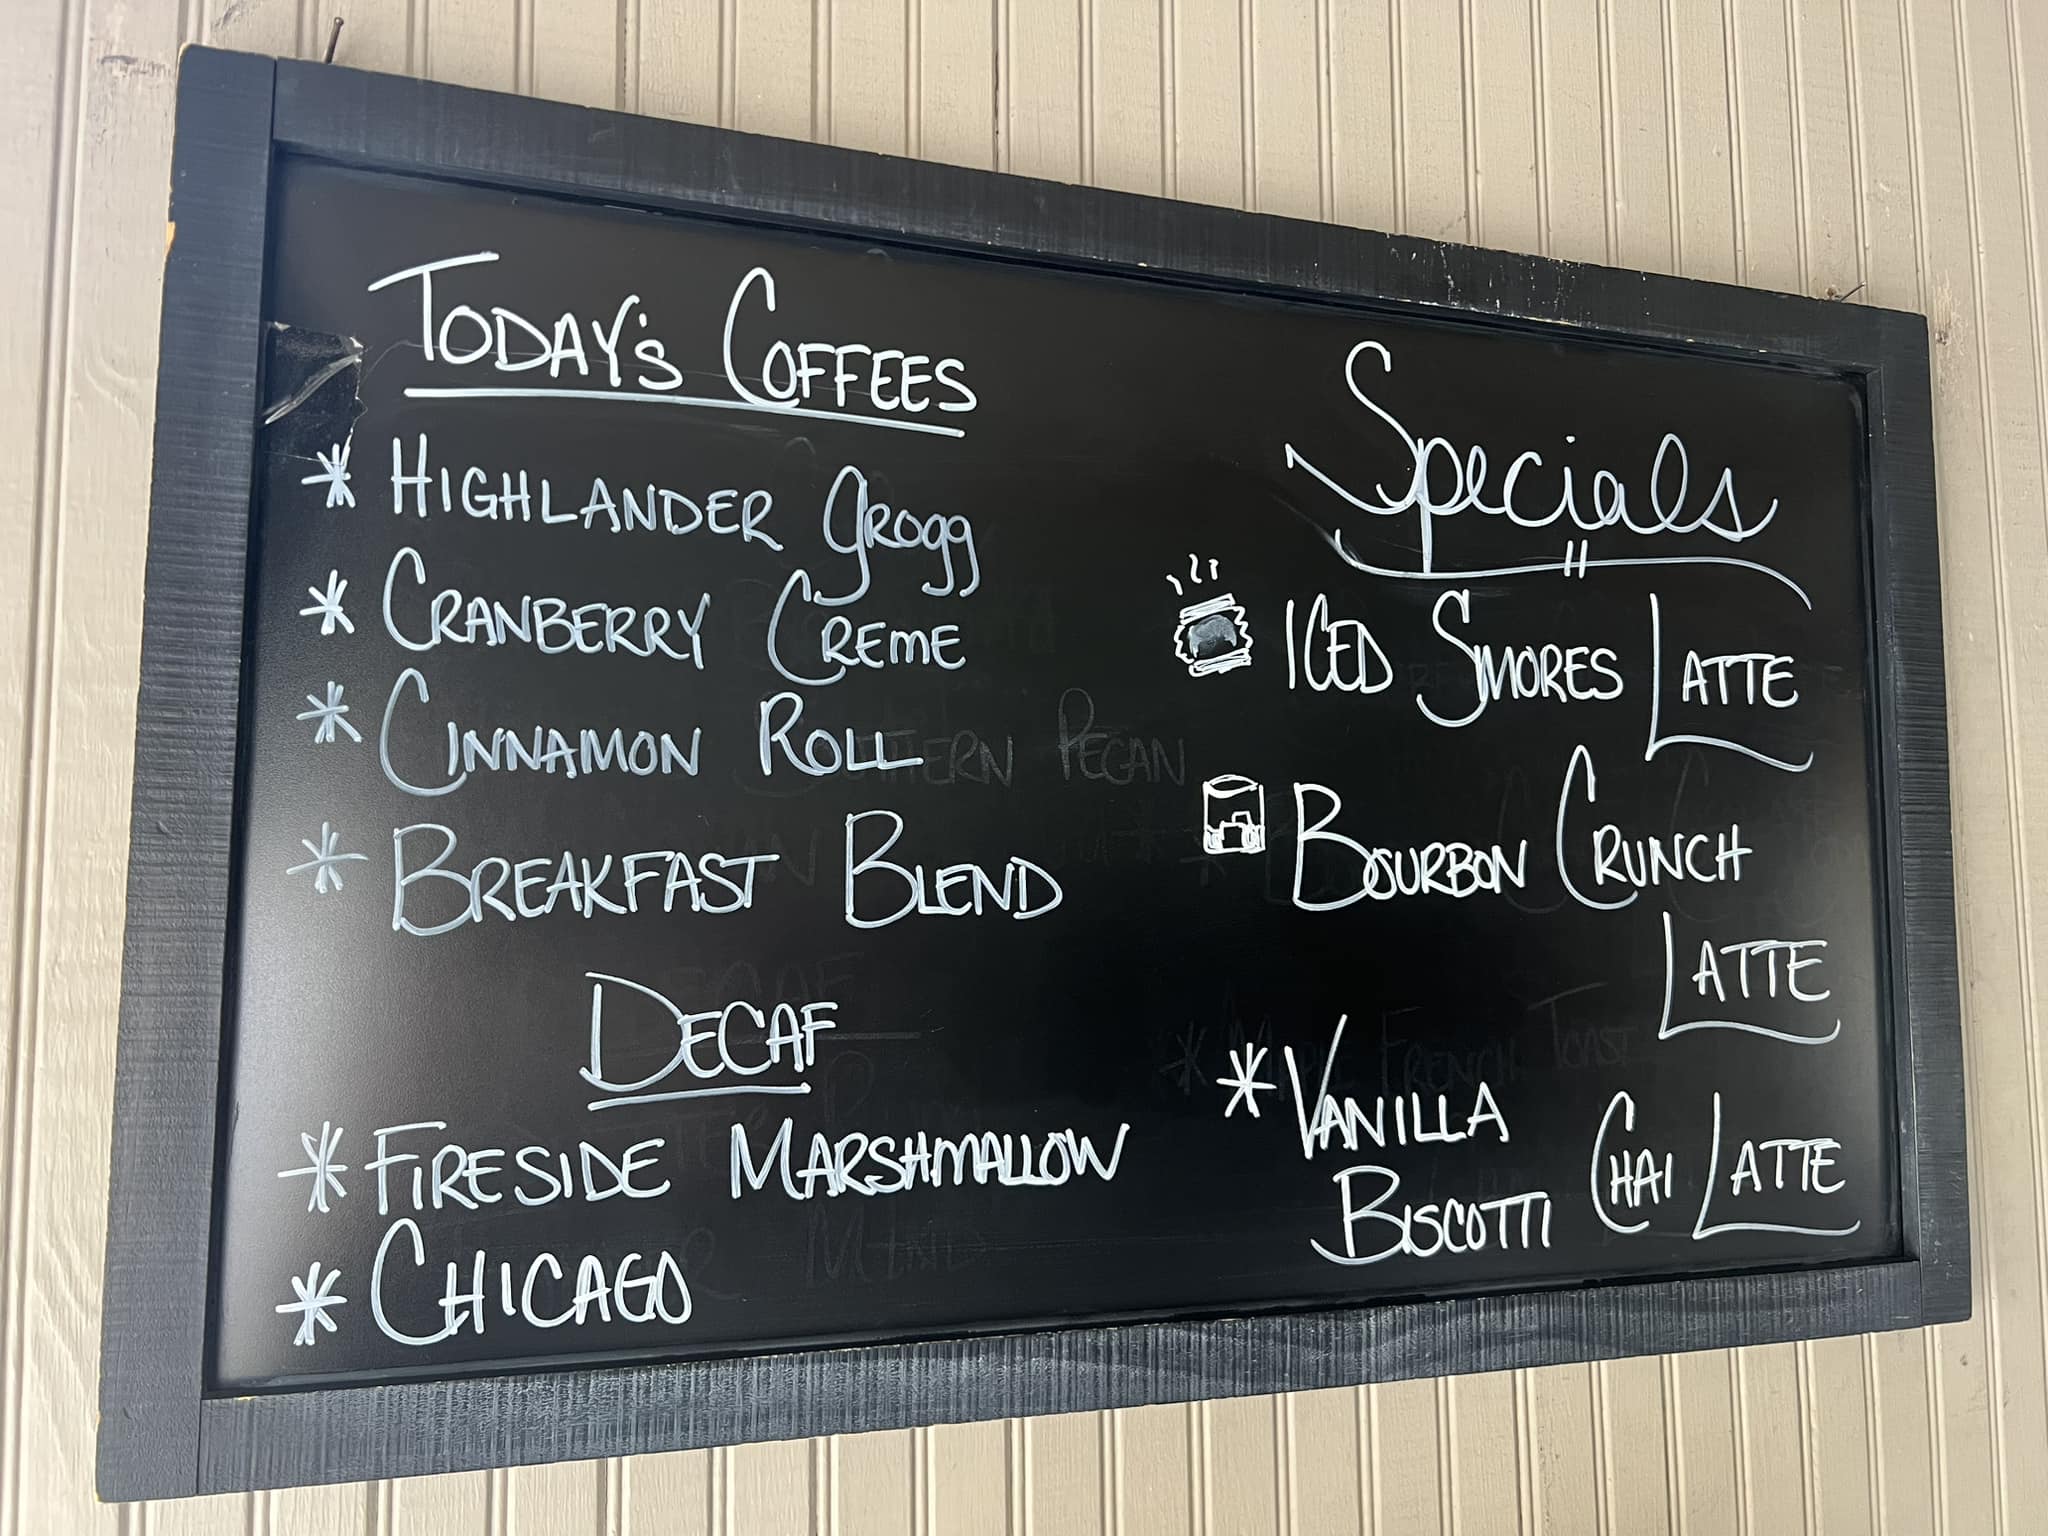 TODAY'S COFFEES
* HIGHLANDER GROGG
* CRANBERRY CREME
* CINNAMON ROLL
* BREAKFAST BLEND
DECAF
* FIRESIDE MARSHMALLOW
* CHICAGO
Specials
ICED SMORES LATTE
BOURBON CRUNCH
LATTE
* VANILLA
BISCOTTI CHAI LATTE
SOUTHERN PECAN
* MAPLE FRENCH TOAST